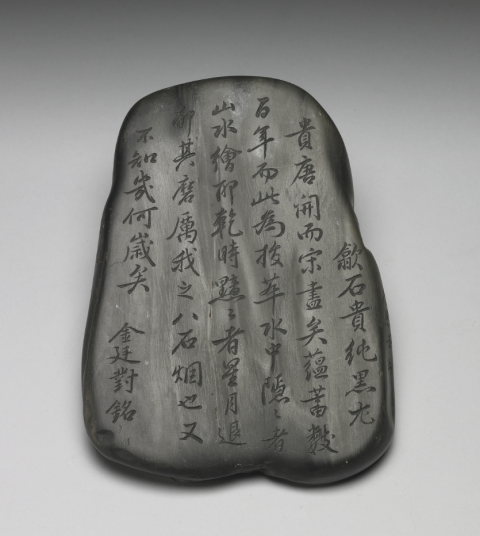 歙石貴純黑尤
貴唐開而宋盡矣蘊蓄數
百年而此為拔萃水中隱〻者
山水繪仰乾時黯〻者星月退
卻其磨厲我之八石烟也又
不知幾何歲矣
金廷對銘